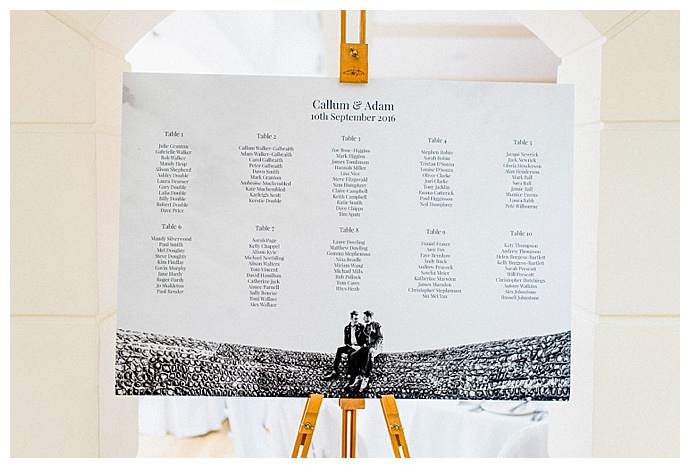 Callum & Adam
10th September 2016
Table 1
Julie Granton
Gabrielle Walker
Bob Walker
Mandy Hesp
Alison Shepherd
Ashley Double
Laura Dresner
Gary Double
Laila Double
Billy Double
Robert Double
Dave Price
Table 2
Callum Walker-Galbraith
Adam Walker-Galbraith
Carol Galbraith
Peter Galbraith
Dawn Smith
Mark Granton
Ambroise Muchembled
Kate Muchembled
Kayleigh Scott
Kerstie Double
Table 3
Zoe Rose-Higgins
Mark Higgins
James Tomlinson
Hannah Miller
Lisa Nice
Steve Fitzgerald
Sam Dumphrey
Claire Campbell
Keith Campbell
Katie Smith
Dave Chipps
Tim Spatz
Table 4
Stephen Robin
Sarah Robin
Tristan D'Souza
Louise D'Souza
Oliver Clarke
Juri Clarke
Tony Jacklin
Emma Catterick
Paul Higginson
Neil Dumphrey
Table 5
Jacqui Newrick
Jack Newrick
Gloria Henderson
Alan Henderson
Mark Ball
Sara Ball
Jamie Ball
Maurice Evens
Laura Babb
Pete Wilbourne
Table 6
Mandy Silverwood
Paul Smith
Mel Doughty
Steve Doughty
Kim Findlay
Gavin Murphy
Jane Hardy
Roger Hardy
Jo Skakleton
Paul Render
Table 7
Sarah Page
Kelly Chappel
Alison Kyte
Michael Northling
Alison Walters
Tom Vincent
David Hamilton
Catherine Jack
Aimee Parnell
Sally Bourne
Toni Wallace
Alex Wallace
Table 8
Laure Dowling
Matthew Dowling
Gemma Stephenson
Nina Beadle
Miriam Wang
Michael Mills
Bab Pollock
Tom Carve
Rhys Healy
Table 9
Daniel Fraser
Amy Fox
Faye Renshaw
Andy Buck
Andrew Peacock
Sascha Meier
Katherine Marwien
James Marsden
Christopher Stephenson
Sin McCran
Table 10
Katy Thompson
Andrew Thompson
Helen Burgess-Bartlett
Kelly Burgess-Bartlett
Sarah Prescott
Will Prescott
Christopher Hutchings
Antony Watkins
Alex Johnstone
Russell Johnstone